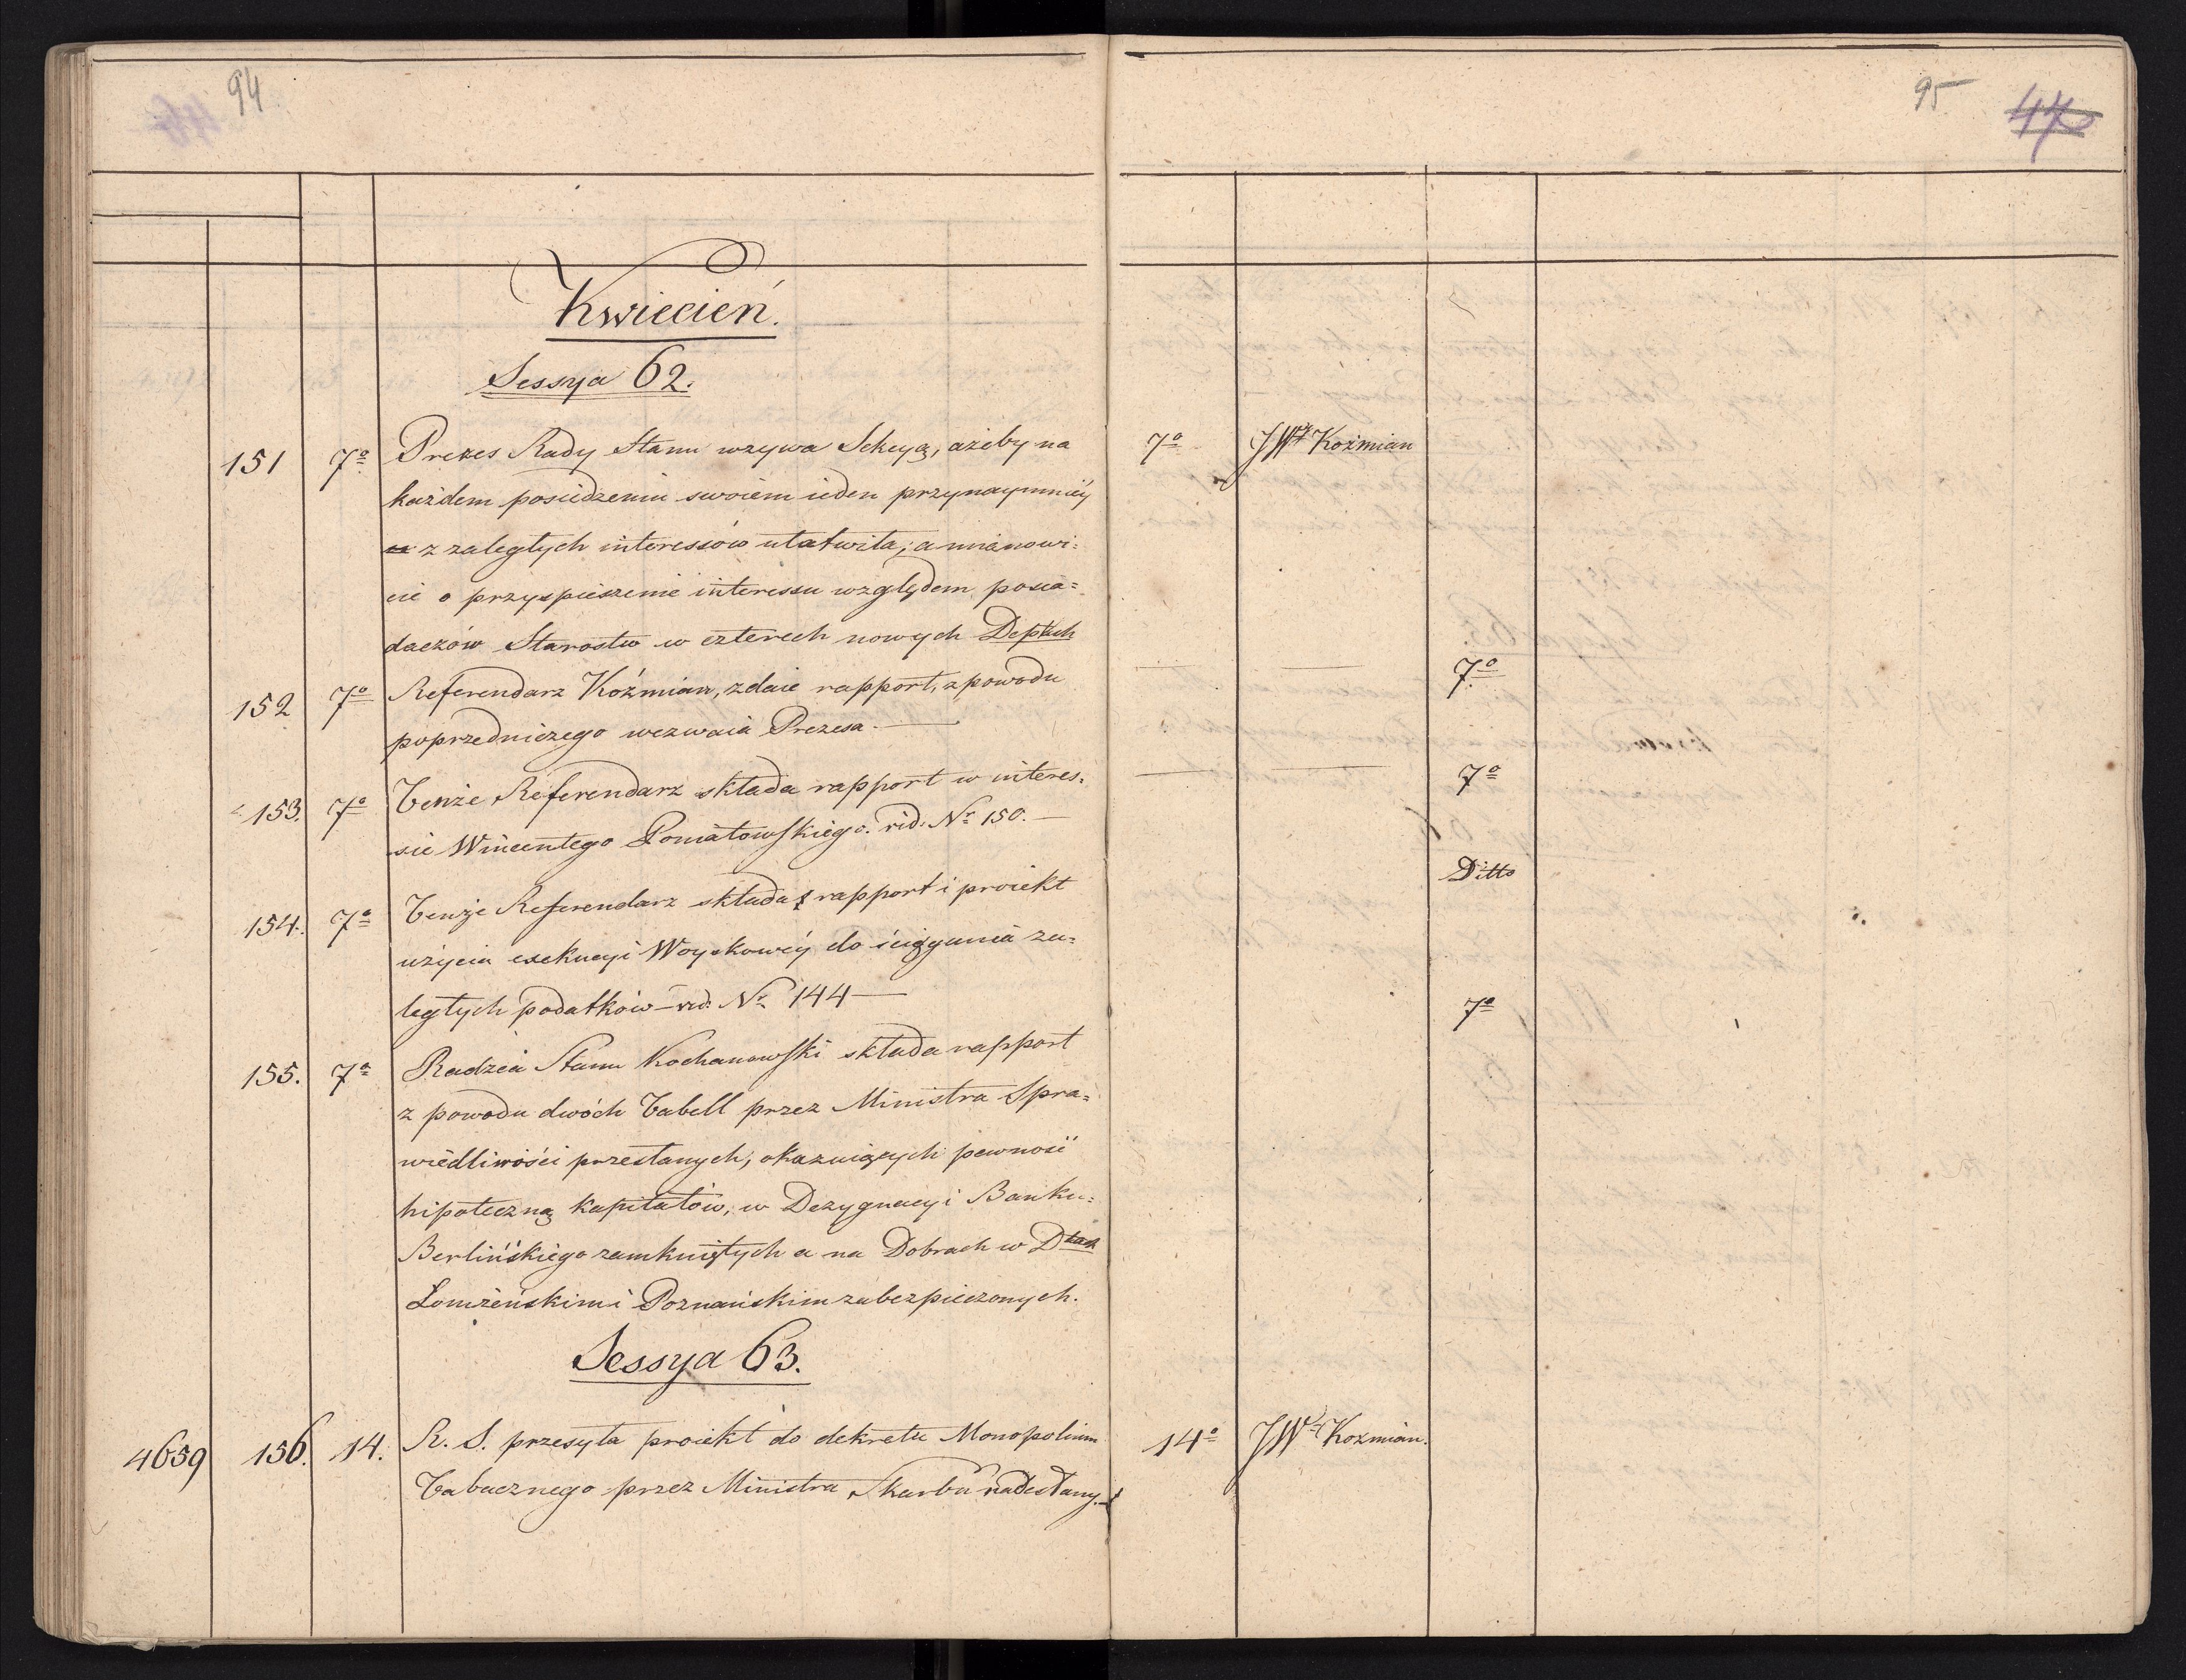 94
95
47
Kwiecień.
Sessya 62.
151 7º Prezes Rady Stanu wzywa Sekcyą, ażeby na
każdem posiedzeniu swoiem ieden przynaymniéy
z zaległych interessów ułatwiła; a mianowi=
cie o przyspieszenie interessu względem posia=
daczów Starostw w czterech nowych Deptach
7º JWº Koźmian
152 7º Referendarz Koźmian, zdaie rapport, z powodu
poprzedniczego wezwaia Prezesa.—
7º
153. 7º Tenże Referendarz składa rapport w interes=
sie Wincentego Poniatowskiego. vid. Nº 150.—
7º
154. 7º Tenże Referendarz składa rapport i proiekt
użycia exekucyi Woyskowéy do ściągania za=
ległych podatków— vid. Nº 144—
Ditto
155. 7º Radzca Stanu Kochanowski składa rapport
z powodu dwóch Tabell przez Ministra Spra=
wiedliwości przesłanych, okazuiących pewność
hipoteczną kapitałów, w Dezygnacyi Banku=
Berlińskiego zamkniętych a na Dobrach w Dtach
Łomżeńskim i Poznańskim zabezpieczonych.
7º
Sessya 63.
4659 156. 14. R. S. przesyła proiekt do dekretu Monopolium
Tabacznego przez Ministra Skarbu nadesłany.—
14º JWº Kozmian.